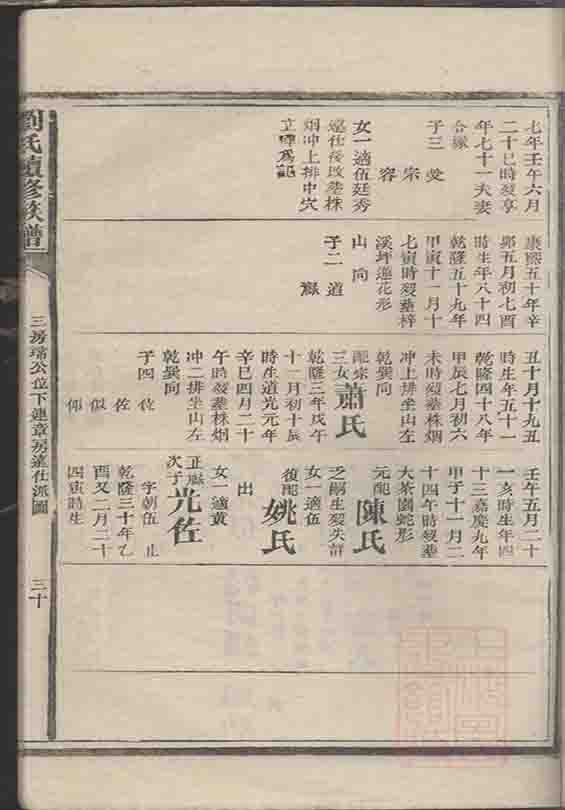 七年壬午六月
二十巳時歿享
年七十一夫妻
合塚
子三 受
宗
容
女一適伍廷秀
遠仕後改葬株
烟冲上排中穴
立碑爲記
康熙五十年辛
卯五月初七酉
時生年八十四
乾隆五十九年
甲寅十一月十
七寅時歿葬梓
溪坪蓮花形
山向
子二 道
嶽
丑十月十九丑
時生年五十一
乾隆四十八年
甲辰七月初六
未時歿葬株烟
冲上排坐山左
乾巽向
龍宗
三女 蕭氏
乾隆三年戊午
十一月初十辰
時生道光元年
辛巳四月二十
午時歿葬株烟
冲二排坐山左
乾巽向
子四 位
佐
似
仰
壬午五月二十
一亥時生年四
十三嘉慶九年
甲子十一月二
十四午時歿葬
大茶園蛇形
元配 陳氏
之嗣生歿失詳
女一適伍
復配 姚氏
出
女一適黄
正嶽
次子 光佐
字朝伍 止
乾隆三十年乙
酉又二月二十
四寅時生
劉氏續修族譜
三房瑞公位下連章房遠仕派圖
三十